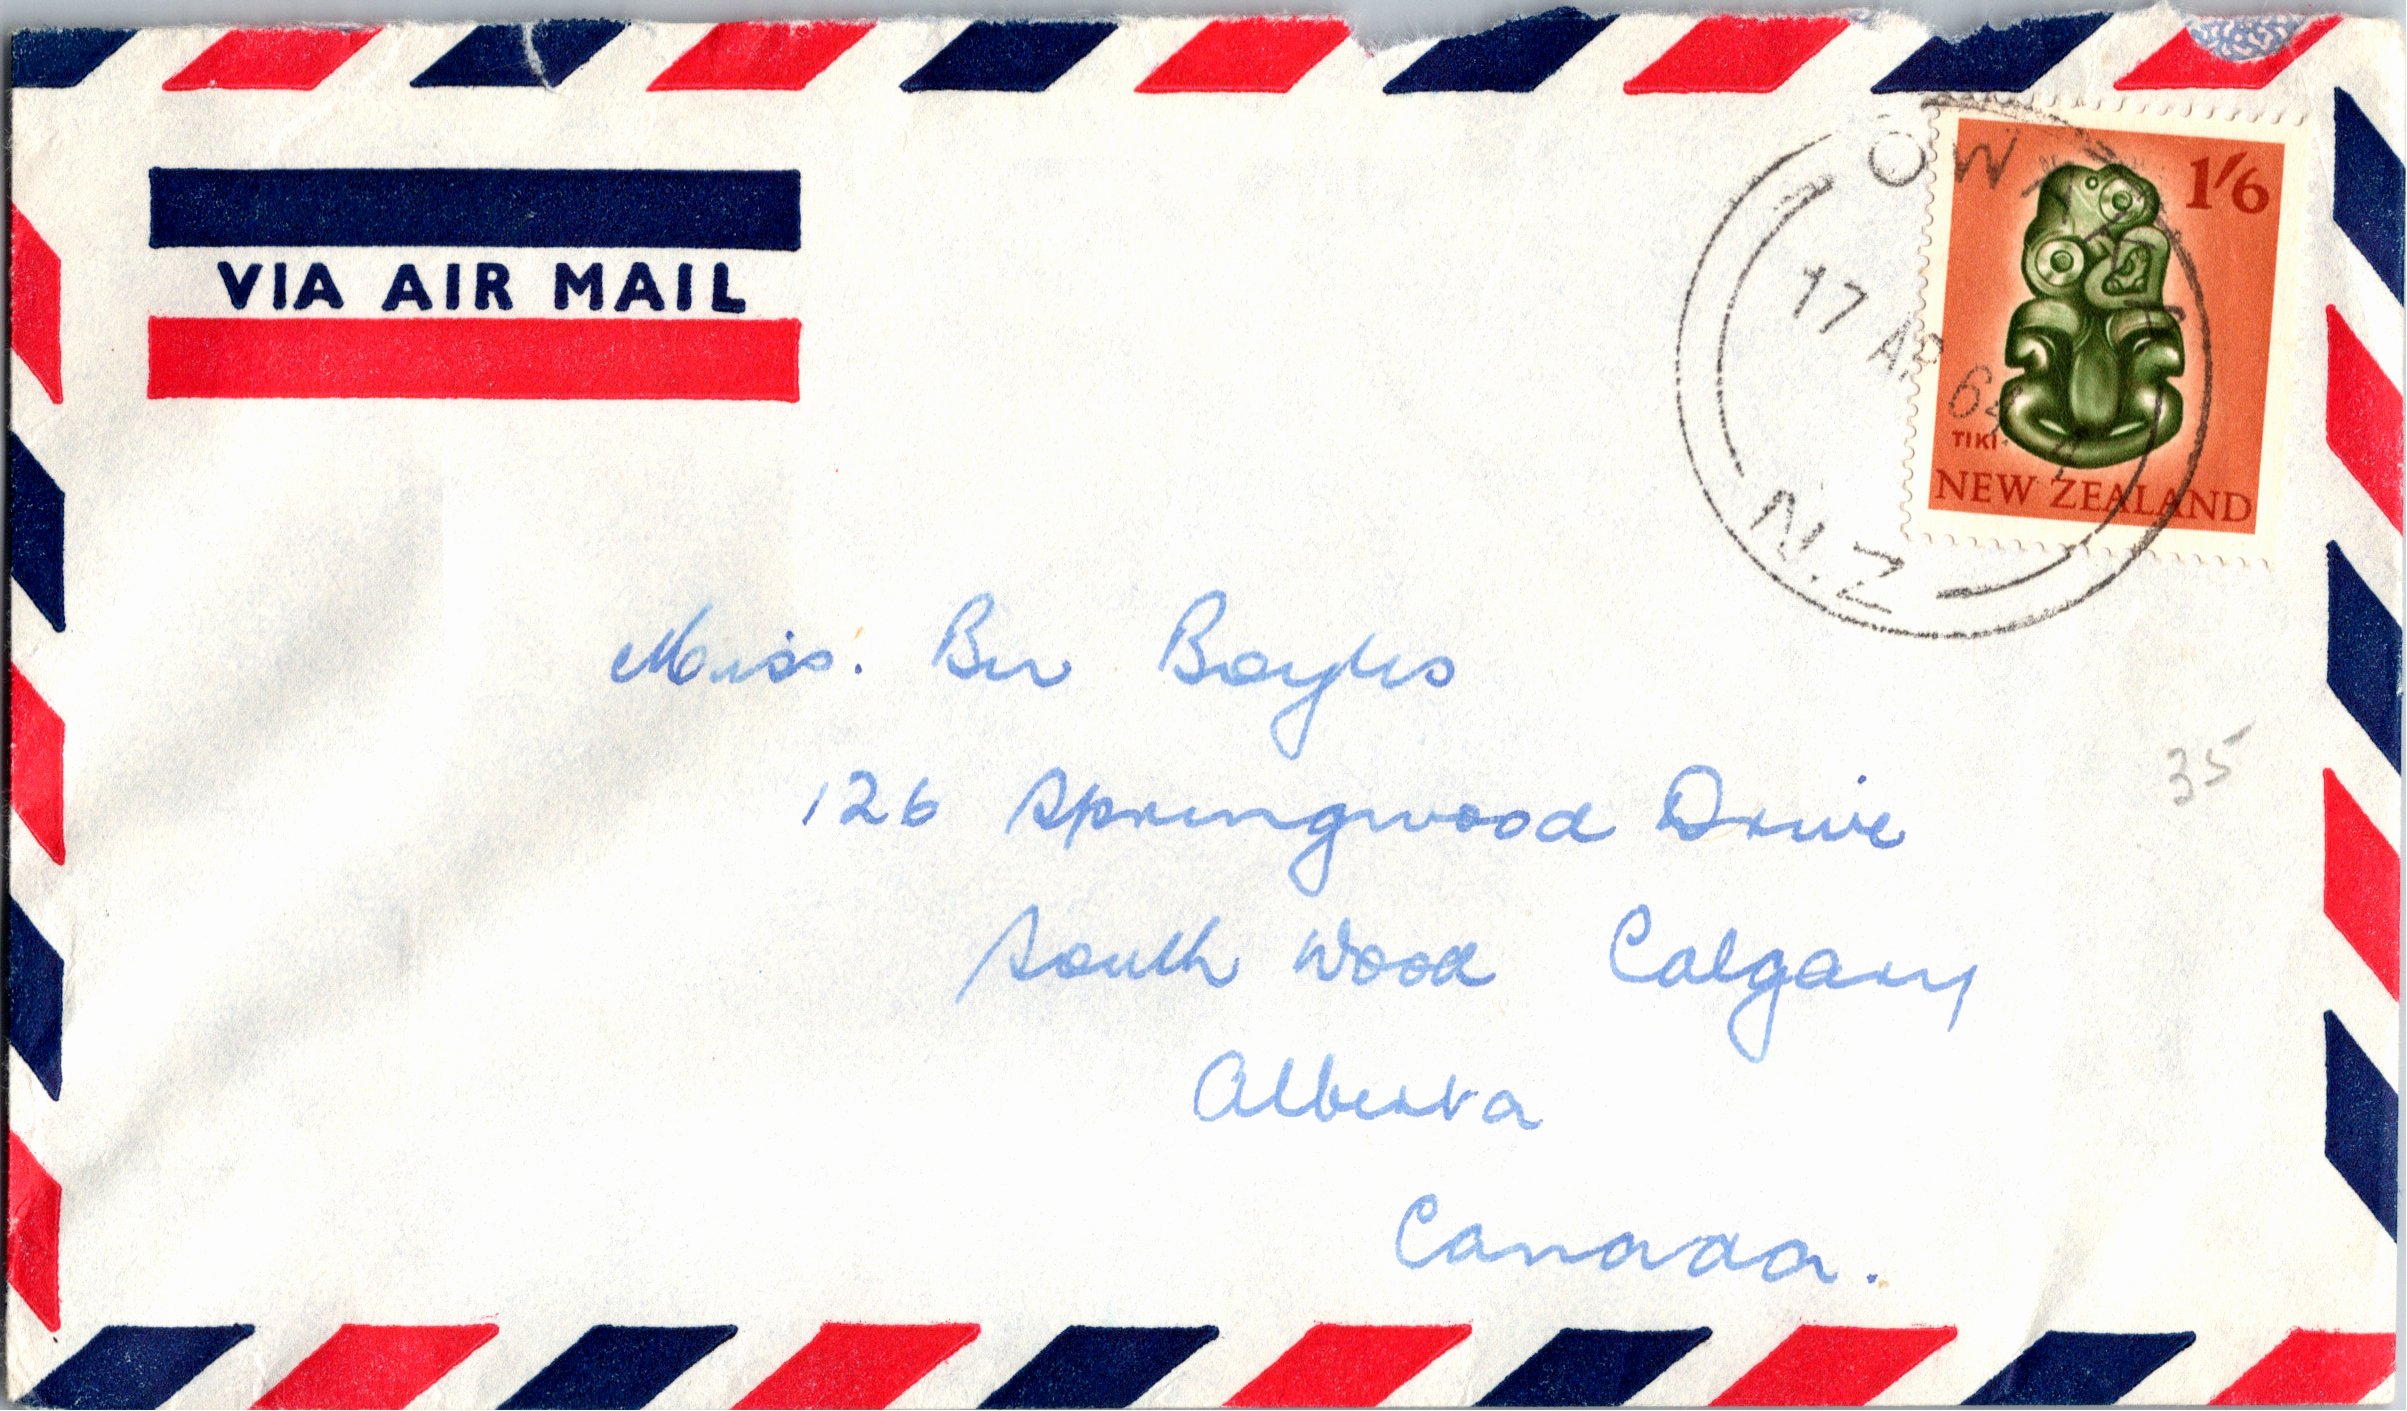 VIA AIR MAIL
1'/6
TIKI
NEW ZEALAND
17 AP 64
N.Z
Miss. Bev Boyles
126 Springwood Drive
South Wood Calgary
Alberta
Canada.
35